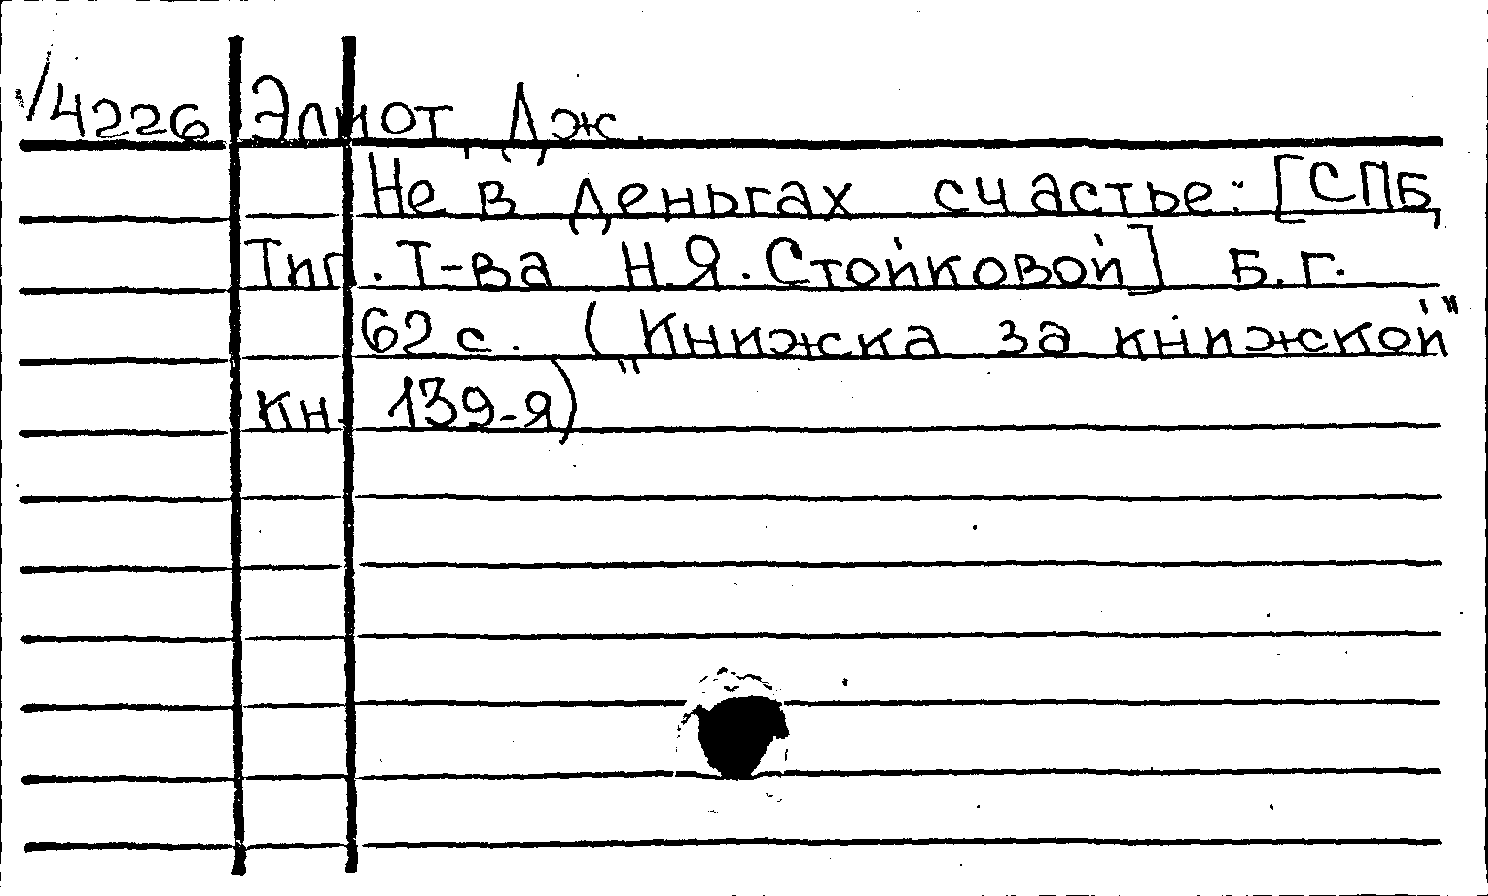 √4226 Элиот, Дж.
Не в деньгах счастье: [СПБ,
Тип. Т-ва Н.Я. Стойковой] Б.г.
62 с. („Книжка за книжкой"
кн. 139-я)